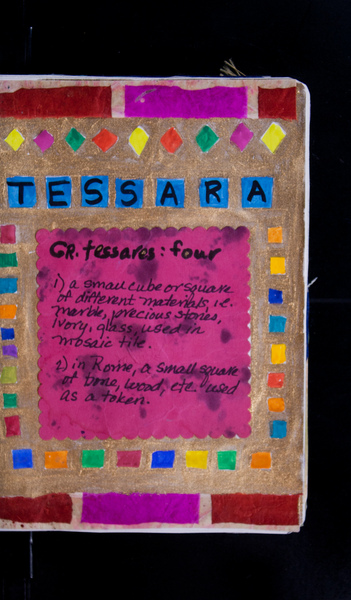 TESSARA
GR. tessares: four
1) a small cube or square
of different materials, i.e.
marble, precious stones,
ivory, glass, used in
mosaic tile.
2) in Rome, a small square
of bone, wood, etc. used
as a token.